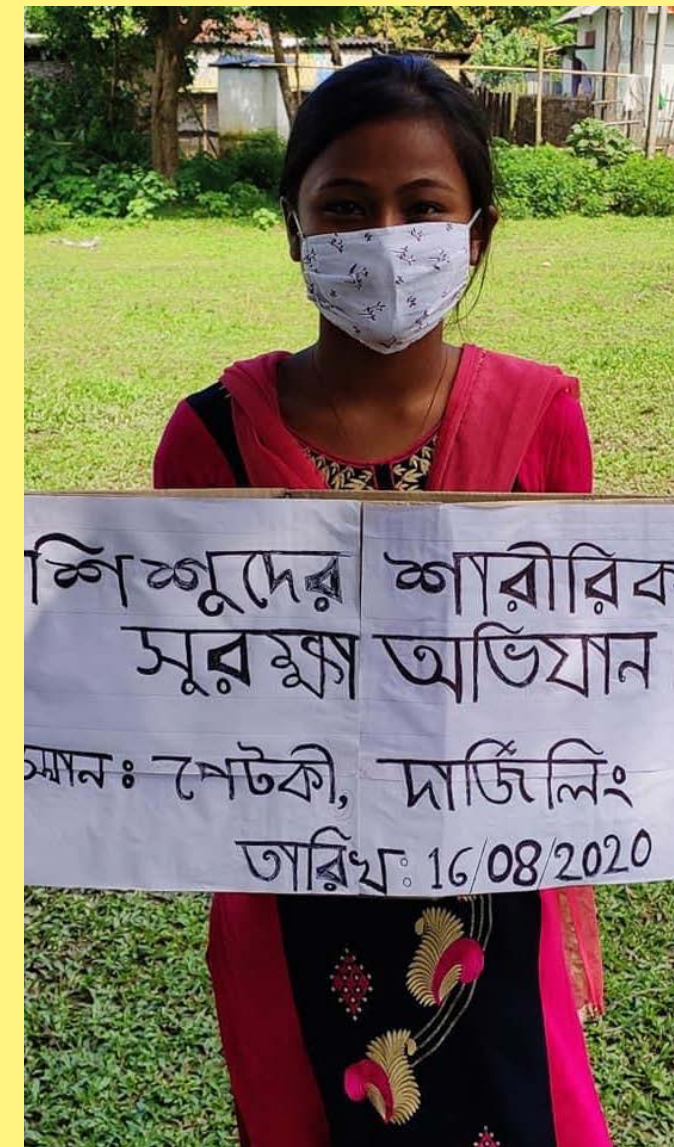 শিশুদের শারীরিক
সুরক্ষা অভিযান
স্থান: পেটকী, দার্জিলিং
তারিখ: 16/08/2020